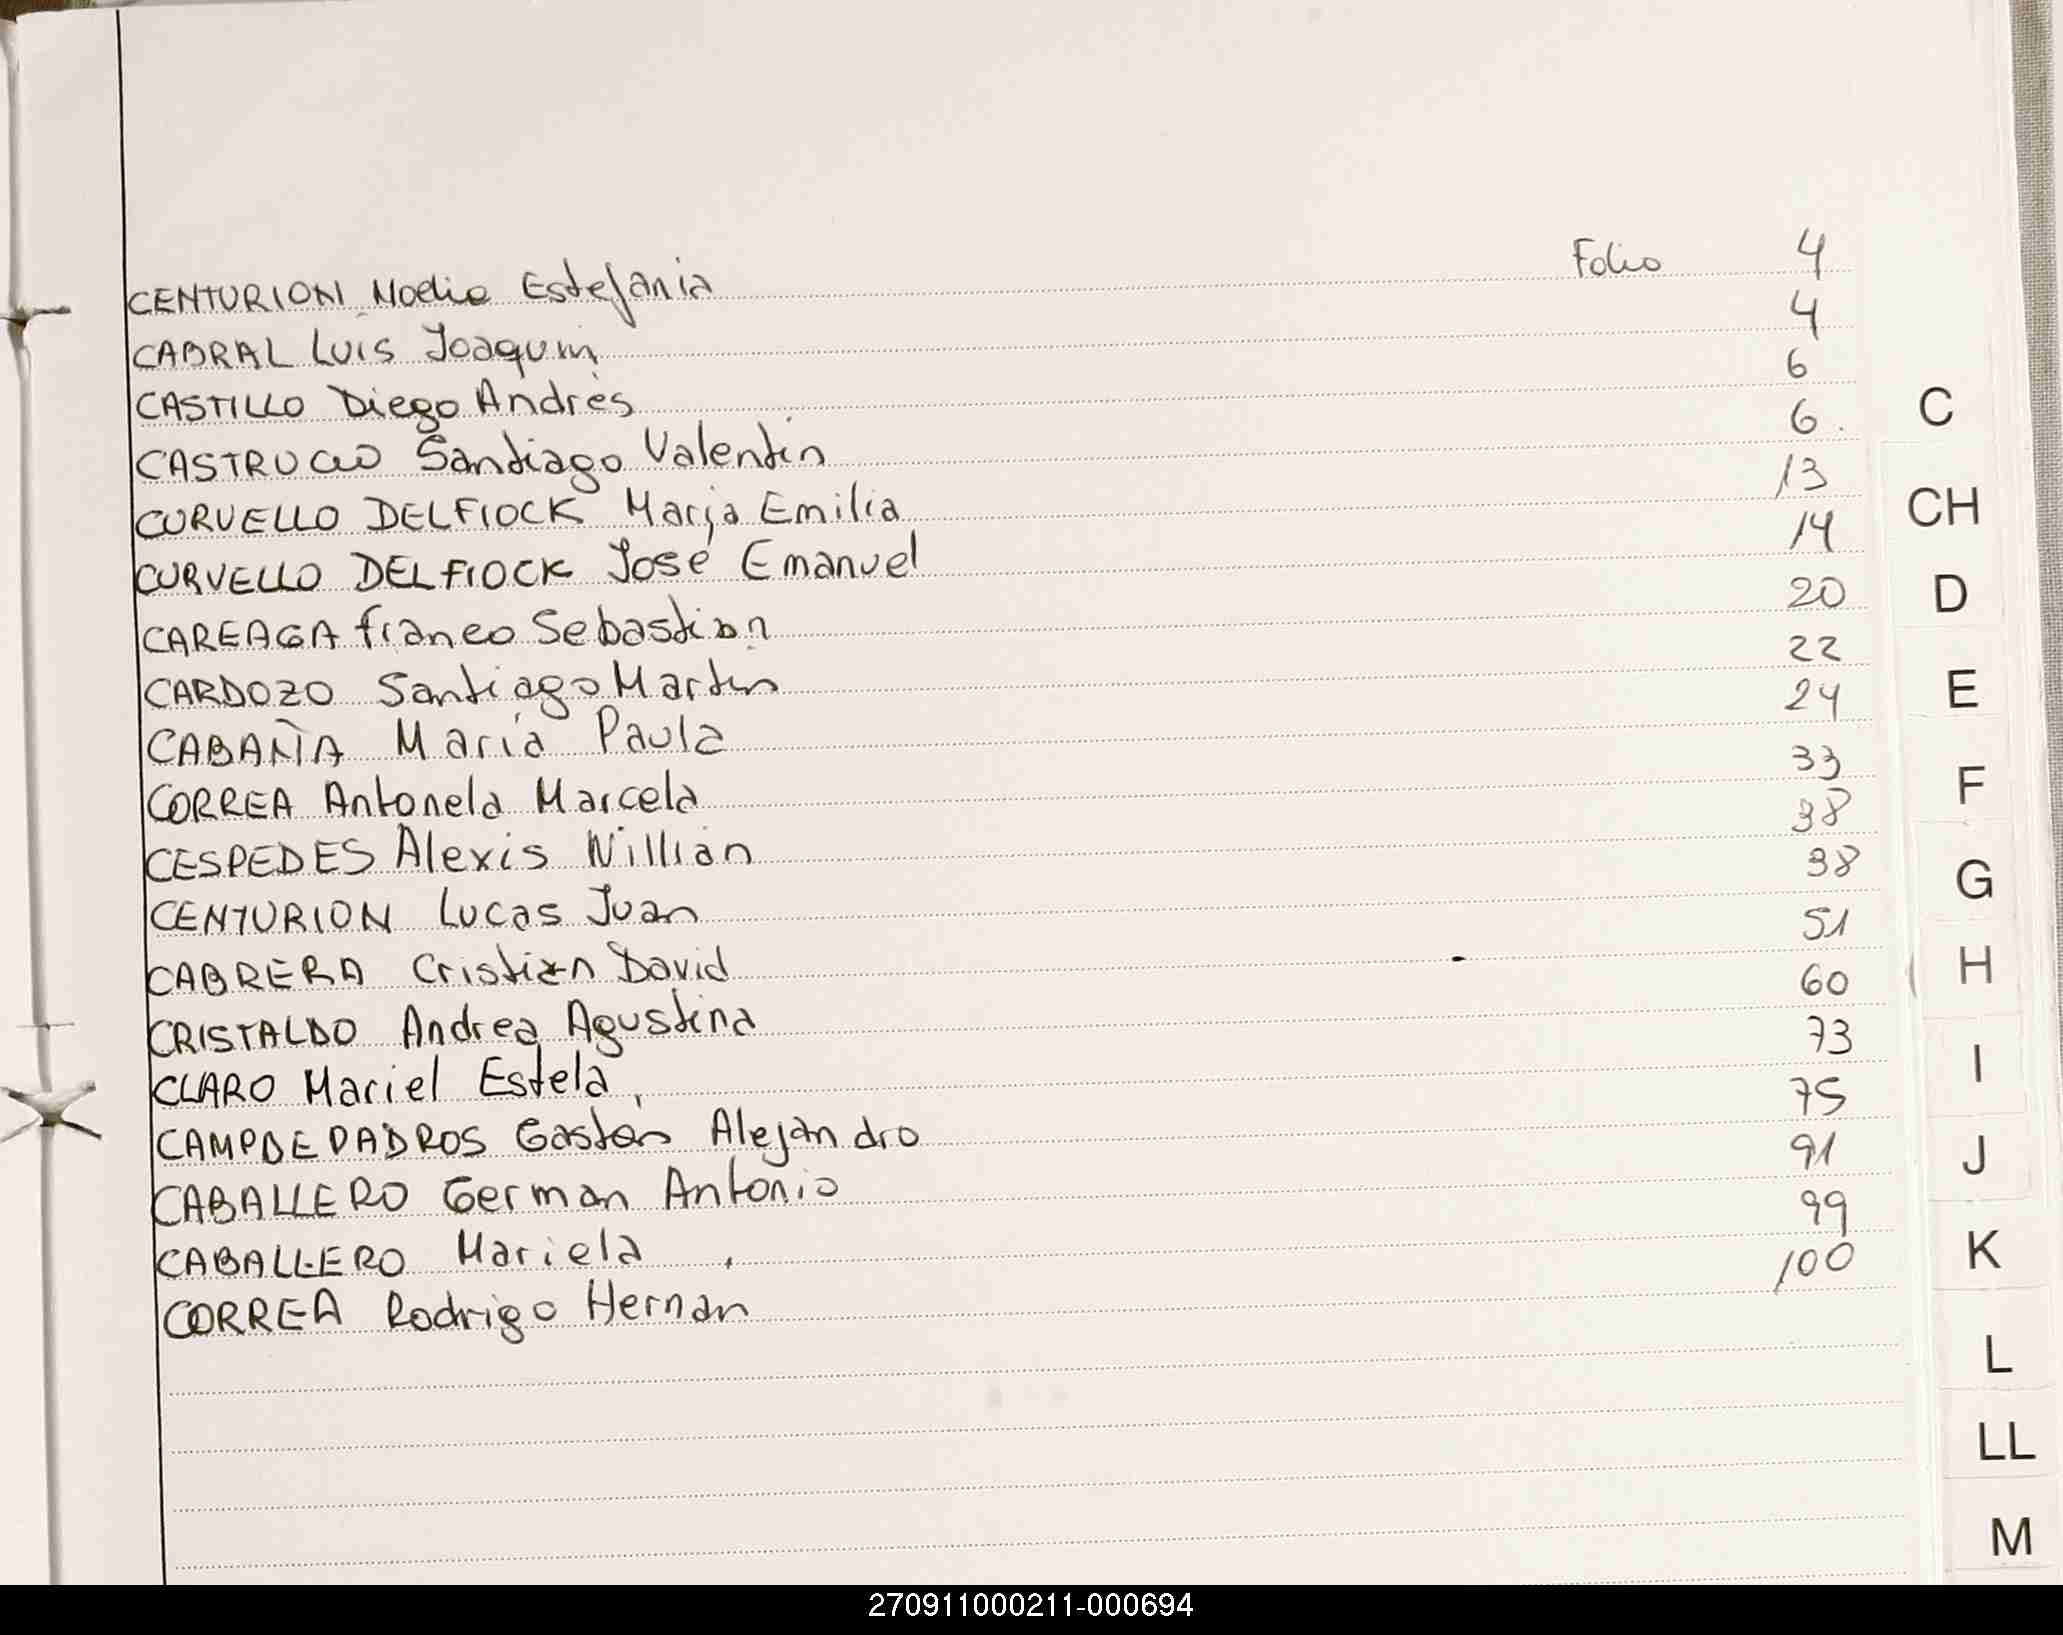 CENTURION Noelia Estefania Folio 4
CABRAL Luis Joaquin 4
CASTILLO Diego Andrés 6
CASTRUCCIO Santiago Valentin 6
CURVELLO DELFIOCK Maria Emilia 13
CURVELLO DELFIOCK José Emanuel 14
CAREAGA franco Sebastian 20
CARDOZO Santiago Martin 22
CABAÑA Maria Paula 24
CORREA Antonela Marcela 33
CESPEDES Alexis Willian 38
CENTURION Lucas Juan 38
CABRERA Cristian David 51
CRISTALDO Andrea Agustina 60
CLARO Mariel Estela 73
CAMPDEPADROS Gastón Alejandro 75
CABALLERO German Antonio 91
CABALLERO Mariela 99
CORREA Rodrigo Hernan 100
C
CH
D
E
F
G
H
I
J
K
L
LL
M
270911000211-000694